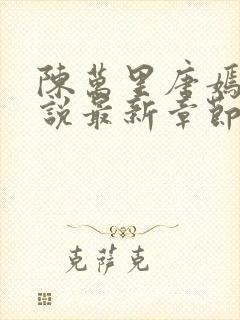 陳萬里唐嫣
說最新章節
克萨克